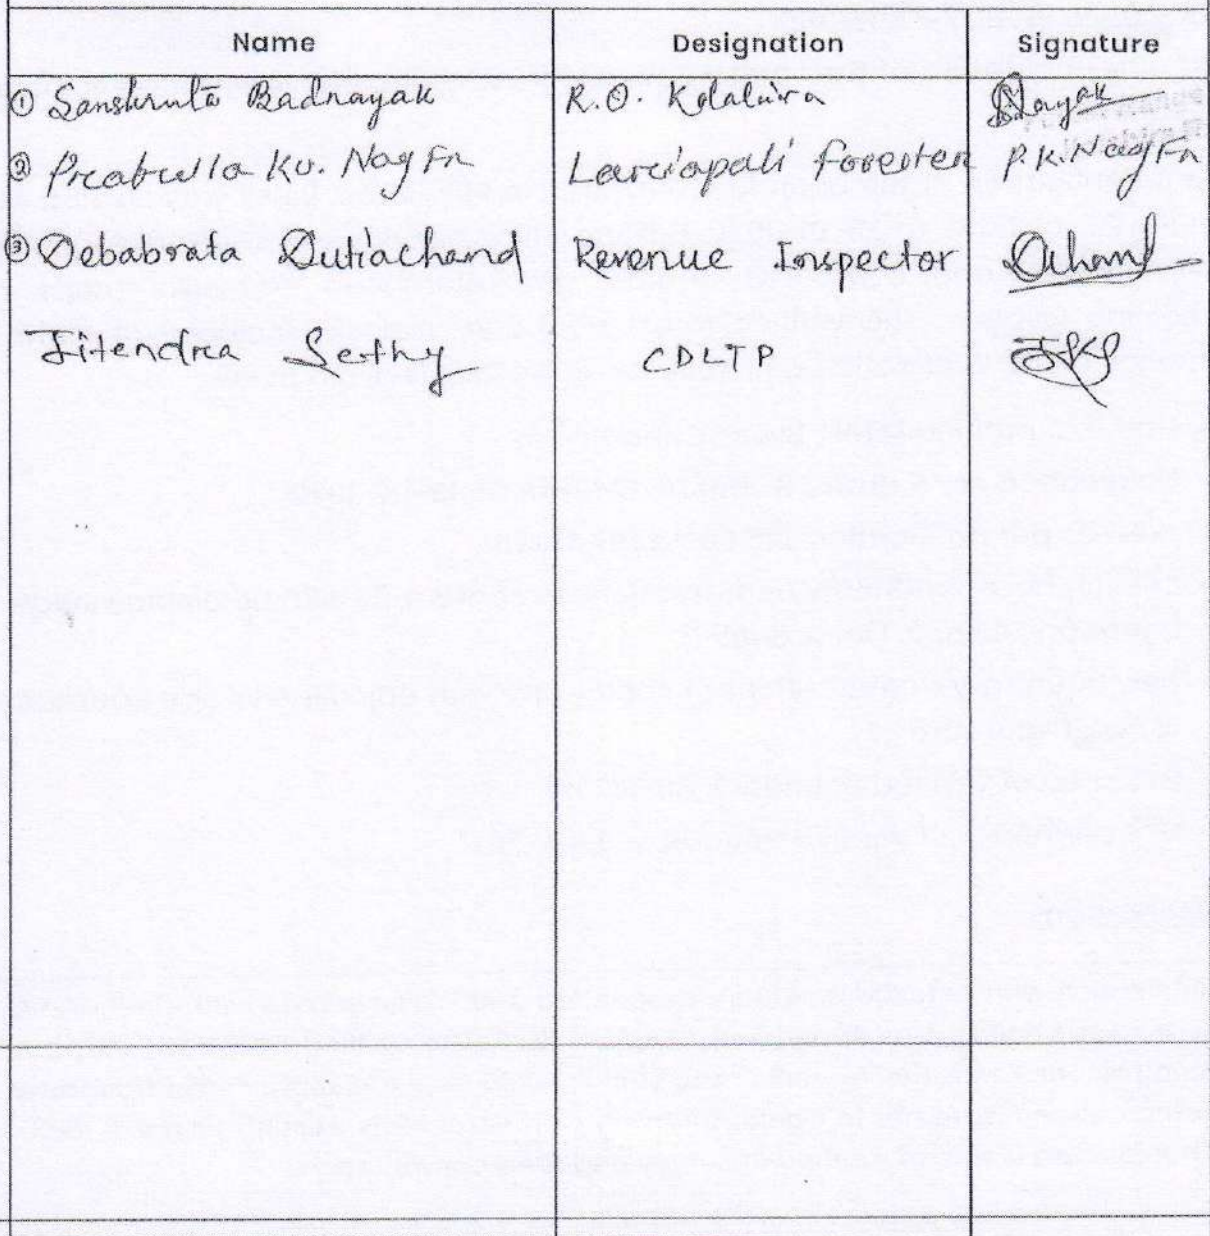 Name Designation Signature
① Sanskruta Badnayak R.O. Kolabira Nayak
② Prcabulla Ku. Nag Fr Larciapali forester P.K. Nag Fr
③ Debabrata Dutiachand Revenue Inspector DChand
Jitendrca Sethy CDLTP